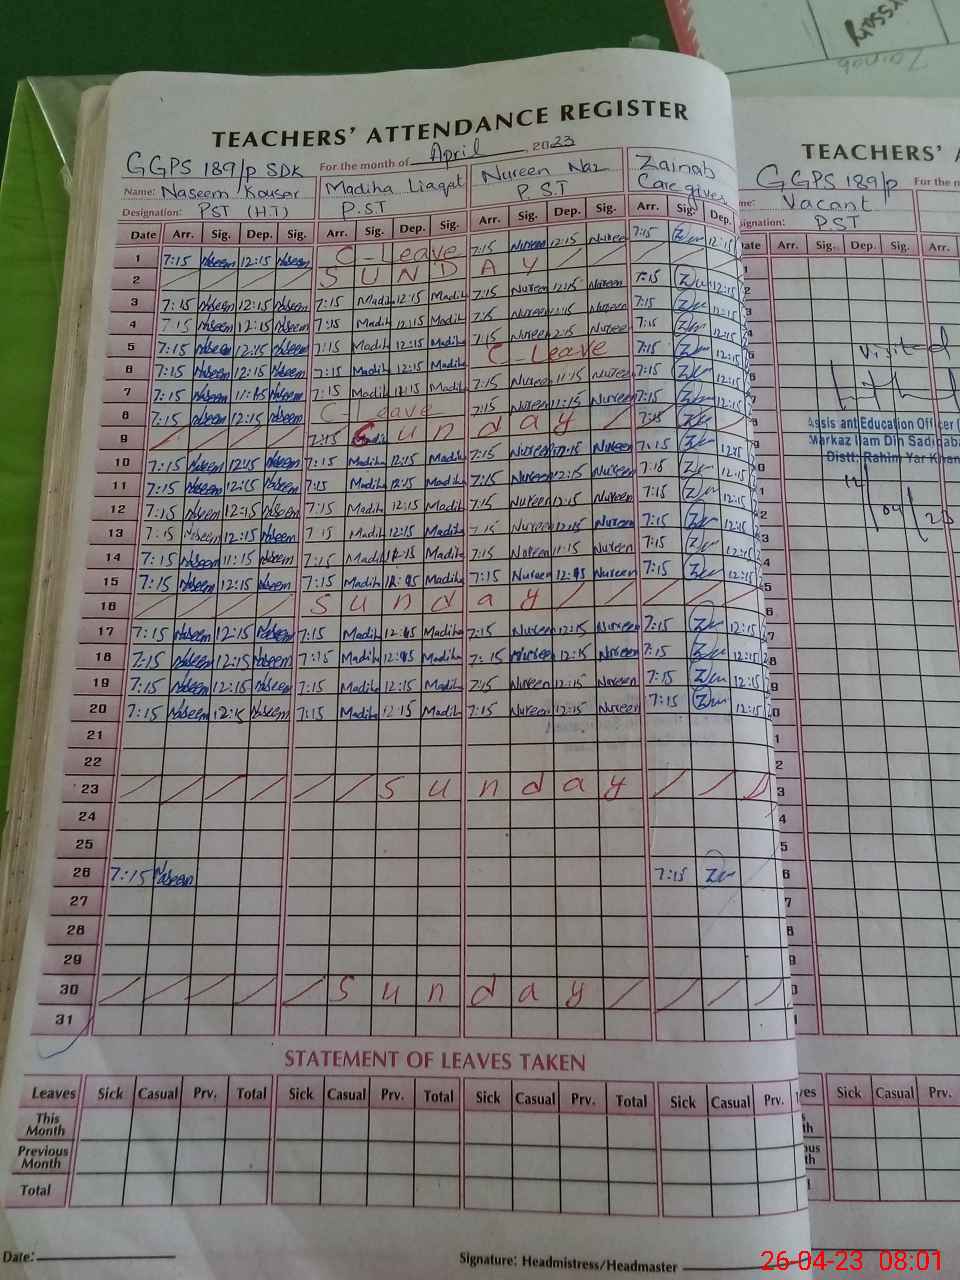 TEACHERS' ATTENDANCE REGISTER
For the month of April, 2023
GGPS 189/p SDK
Name: Naseem Kousar Madiha Liaqat Nureen Naz Zainab
Designation: PST (H.T) P.S.T P.S.T Care giver
Date Arr. Sig. Dep. Sig. Arr. Sig. Dep. Sig. Arr. Sig. Dep. Sig. Arr. Sig. Dep.
1 7:15 Naseem 12:15 Naseem C-Leave 7:15 Nureen 12:15 Nureen 7:15 12:15
2 SUNDAY 7:15 12:15
3 7:15 Naseem 12:15 Naseem 7:15 Madiha 12:15 Madiha 7:15 Nureen 12:15 Nureen 7:15
4 7:15 Naseem 12:15 Naseem 7:15 Madiha 12:15 Madiha 7:15 Nureen 12:15 Nureen 7:15
5 7:15 Naseem 12:15 Naseem 7:15 Madiha 12:15 Madiha C-Leave 7:15 12:15
6 7:15 Naseem 12:15 Naseem 7:15 Madiha 12:15 Madiha 7:15 Nureen 11:15 Nureen 7:15 12:15
7 7:15 Naseem Naseem 7:15 Madiha 12:15 Madiha 7:15 Nureen 11:15 Nureen 7:15 12:15
8 7:15 Naseem 12:15 Naseem C-Leave
9 7:15 Sunday
10 7:15 Naseem 12:15 Naseem 7:15 Madiha 12:15 Madiha 7:15 Nureen 12:15 Nureen 7:15 12:15
11 7:15 Naseem 12:15 Naseem 7:15 Madiha 12:15 Madiha 7:15 Nureen 12:15 Nureen 12:15
12 7:15 Naseem 12:15 Naseem 7:15 Madiha 12:15 Madiha 7:15 Nureen 12:15 Nureen 7:15 12:15
13 7:15 Naseem 12:15 Naseem 7:15 Madiha 12:15 Madiha 7:15 Nureen 12:15 Nureen 7:15 12:15
14 7:15 Naseem 11:15 Naseem 7:15 Madiha Madiha 7:15 Nureen 11:15 Nureen 7:15 12:15
15 7:15 Naseem 12:15 Naseem 7:15 Madiha Madiha 7:15 Nureen Nureen 7:15 12:15
16 Sunday
17 7:15 Naseem 12:15 Naseem 7:15 Madiha Madiha 7:15 Nureen 12:15 Nureen 7:15 12:15
18 7:15 Naseem 12:15 Naseem 7:15 Madiha Madiha 7:15 Nureen 12:15 Nureen 7:15 12:15
19 7:15 Naseem 12:15 Naseem 7:15 Madiha 12:15 Madiha 7:15 Nureen 12:15 Nureen 7:15 12:15
20 7:15 Naseem 12:15 Naseem 7:15 Madiha 12:15 Madiha 7:15 Nureen 12:15 Nureen 7:15 12:15
21
22
23 Sunday
24
25
26 7:15 Naseem 7:15
27
28
29
30 Sunday
31
STATEMENT OF LEAVES TAKEN
Leaves Sick Casual Prv. Total Sick Casual Prv. Total Sick Casual Prv. Total Sick Casual Prv.
This Month
Previous Month
Total
Date:
Signature: Headmistress/Headmaster
Zainab
TEACHERS'
GGPS 189/p For the
Vacant
PST
Date Arr. Sig. Dep. Sig. Arr.
Visited
Assistant Education Officer
Markaz Ilam Din Sadiqabad
Distt: Rahim Yar Khan
12/04/23
Sick Casual Prv.
26-04-23 08:01